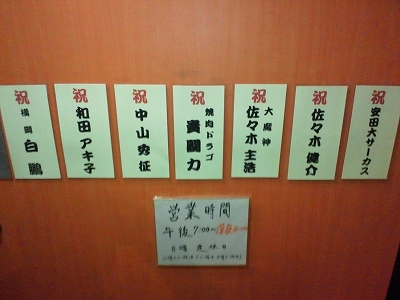 祝
横綱 白鵬
祝
和田アキ子
祝
中山秀征
祝
焼肉ドラゴ 貴闘力
祝
大魔神 佐々木主浩
祝
佐々木健介
祝
安田大サーカス
営業時間
午後7:00〜
日曜定休日